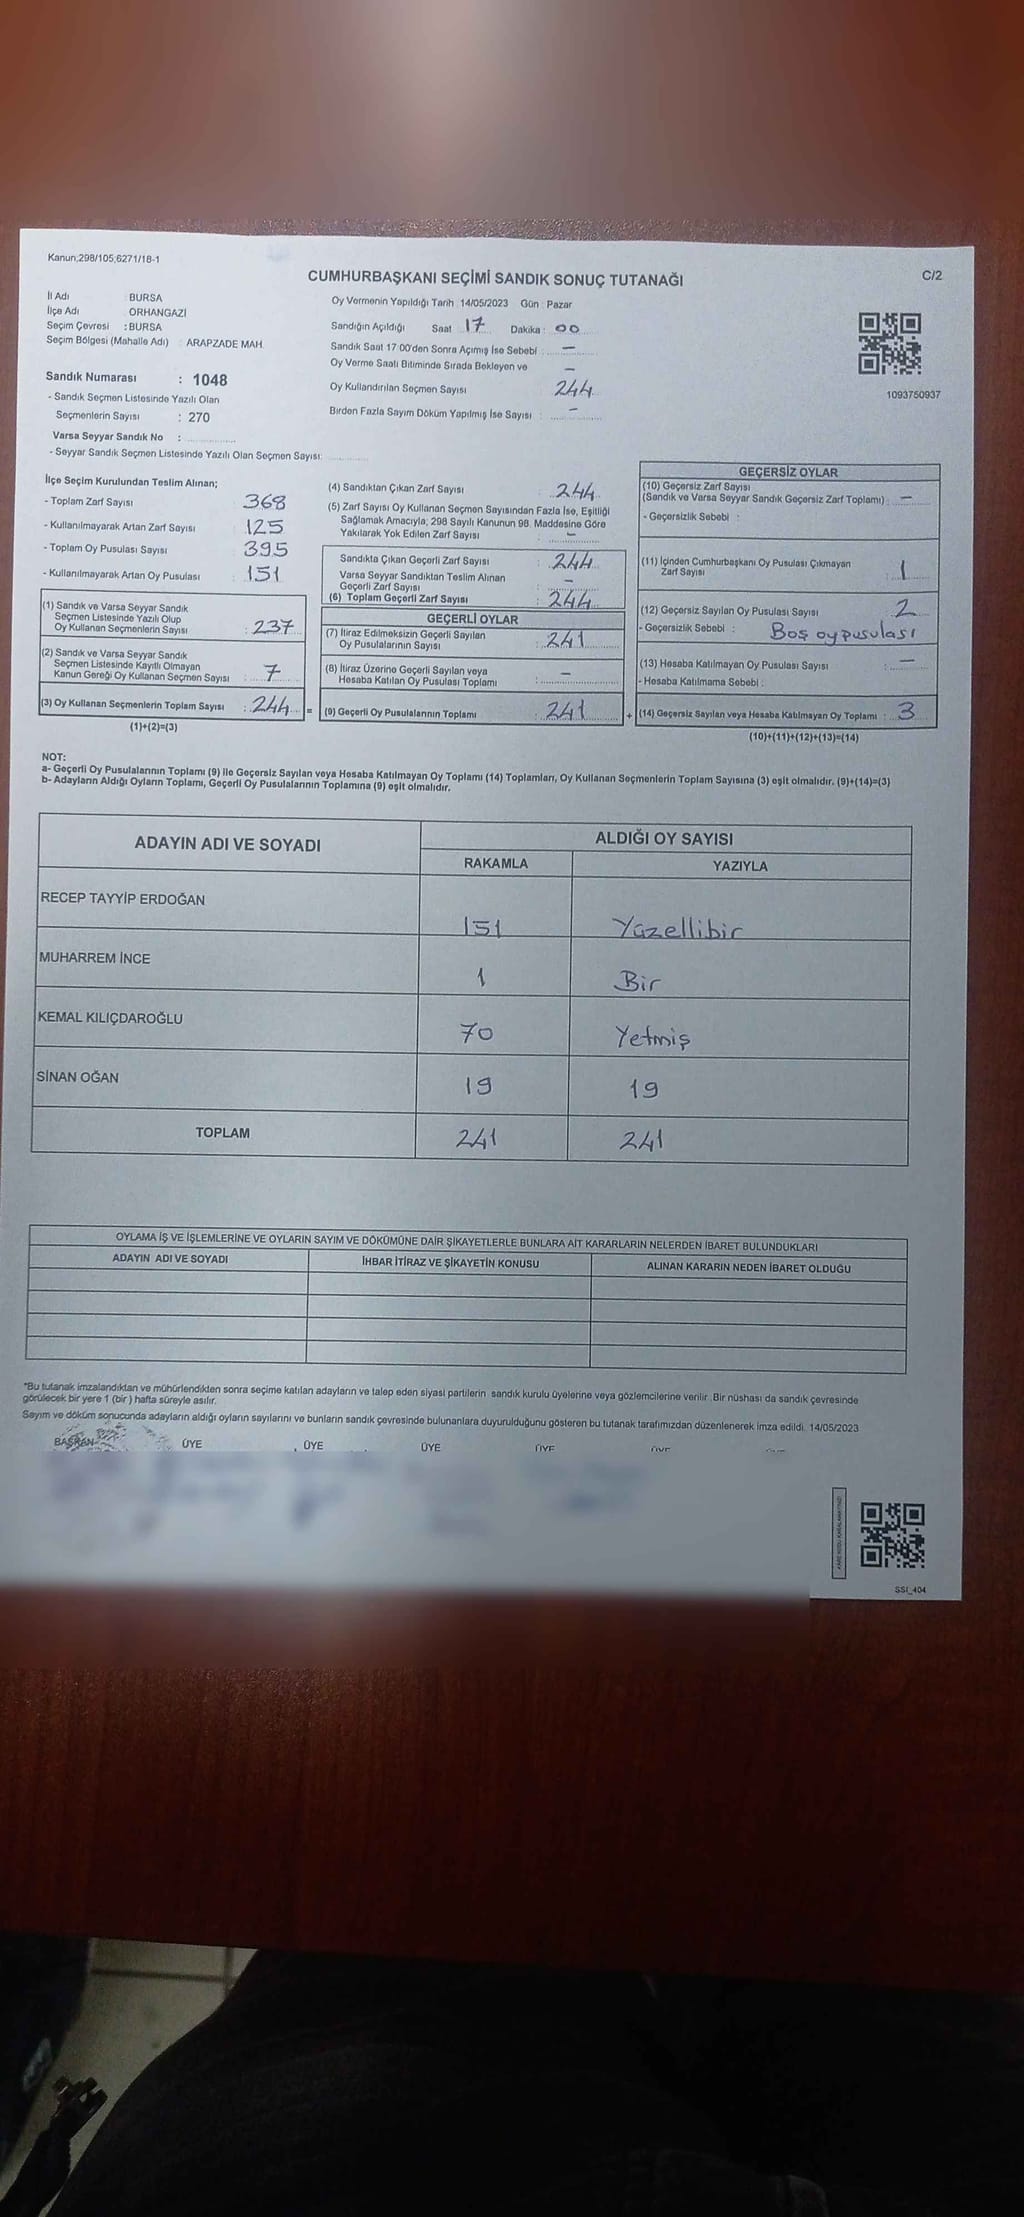 Kanun;298/105;6271/18-1
C/2
CUMHURBAŞKANI SEÇİMİ SANDIK SONUÇ TUTANAĞI
İl Adı : BURSA
İlçe Adı : ORHANGAZİ
Seçim Çevresi : BURSA
Seçim Bölgesi (Mahalle Adı) : ARAPZADE MAH.
Sandık Numarası : 1048
- Sandık Seçmen Listesinde Yazılı Olan
Seçmenlerin Sayısı : 270
Varsa Seyyar Sandık No :
- Seyyar Sandık Seçmen Listesinde Yazılı Olan Seçmen Sayısı:
Oy Vermenin Yapıldığı Tarih : 14/05/2023 Gün : Pazar
Sandığın Açıldığı Saat 17 Dakika : 00
Sandık Saat 17:00'den Sonra Açımış İse Sebebi : —
Oy Verme Saati Bitiminde Sırada Bekleyen ve —
Oy Kullandırılan Seçmen Sayısı 244
Birden Fazla Sayım Döküm Yapılmış İse Sayısı : —
1093750937
İlçe Seçim Kurulundan Teslim Alınan;
- Toplam Zarf Sayısı : 368
- Kullanılmayarak Artan Zarf Sayısı : 125
- Toplam Oy Pusulası Sayısı : 395
- Kullanılmayarak Artan Oy Pusulası : 151
(1) Sandık ve Varsa Seyyar Sandık
Seçmen Listesinde Yazılı Olup
Oy Kullanan Seçmenlerin Sayısı : 237
(2) Sandık ve Varsa Seyyar Sandık
Seçmen Listesinde Kayıtlı Olmayan
Kanun Gereği Oy Kullanan Seçmen Sayısı : 7
(3) Oy Kullanan Seçmenlerin Toplam Sayısı : 244 =
(1)+(2)=(3)
(4) Sandıktan Çıkan Zarf Sayısı : 244
(5) Zarf Sayısı Oy Kullanan Seçmen Sayısından Fazla İse, Eşitliği
Sağlamak Amacıyla; 298 Sayılı Kanunun 98. Maddesine Göre
Yakılarak Yok Edilen Zarf Sayısı : —
Sandıkta Çıkan Geçerli Zarf Sayısı : 244
Varsa Seyyar Sandıktan Teslim Alınan
Geçerli Zarf Sayısı : —
(6) Toplam Geçerli Zarf Sayısı : 244
GEÇERLİ OYLAR
(7) İtiraz Edilmeksizin Geçerli Sayılan
Oy Pusulalarının Sayısı : 241
(8) İtiraz Üzerine Geçerli Sayılan veya
Hesaba Katılan Oy Pusulası Toplamı : —
(9) Geçerli Oy Pusulalarının Toplamı : 241 +
GEÇERSİZ OYLAR
(10) Geçersiz Zarf Sayısı
(Sandık ve Varsa Seyyar Sandık Geçersiz Zarf Toplamı) : —
- Geçersizlik Sebebi :
(11) İçinden Cumhurbaşkanı Oy Pusulası Çıkmayan
Zarf Sayısı : 1
(12) Geçersiz Sayılan Oy Pusulası Sayısı : 2
- Geçersizlik Sebebi : Boş oy pusulası
(13) Hesaba Katılmayan Oy Pusulası Sayısı : —
- Hesaba Katılmama Sebebi :
(14) Geçersiz Sayılan veya Hesaba Katılmayan Oy Toplamı : 3
(10)+(11)+(12)+(13)=(14)
NOT:
a- Geçerli Oy Pusulalarının Toplamı (9) ile Geçersiz Sayılan veya Hesaba Katılmayan Oy Toplamı (14) Toplamları, Oy Kullanan Seçmenlerin Toplam Sayısına (3) eşit olmalıdır. (9)+(14)=(3)
b- Adayların Aldığı Oyların Toplamı, Geçerli Oy Pusulalarının Toplamına (9) eşit olmalıdır.
ADAYIN ADI VE SOYADI
ALDIĞI OY SAYISI
RAKAMLA YAZIYLA
RECEP TAYYİP ERDOĞAN 151 Yüzellibir
MUHARREM İNCE 1 Bir
KEMAL KILIÇDAROĞLU 70 Yetmiş
SİNAN OĞAN 19 19
TOPLAM 241 241
OYLAMA İŞ VE İŞLEMLERİNE VE OYLARIN SAYIM VE DÖKÜMÜNE DAİR ŞİKAYETLERLE BUNLARA AİT KARARLARIN NELERDEN İBARET BULUNDUKLARI
ADAYIN ADI VE SOYADI İHBAR İTİRAZ VE ŞİKAYETİN KONUSU ALINAN KARARIN NEDEN İBARET OLDUĞU
*Bu tutanak imzalandıktan ve mühürlendikten sonra seçime katılan adayların ve talep eden siyasi partilerin sandık kurulu üyelerine veya gözlemcilerine verilir. Bir nüshası da sandık çevresinde
görülecek bir yere 1 (bir) hafta süreyle asılır.
Sayım ve döküm sonucunda adayların aldığı oyların sayılarını ve bunların sandık çevresinde bulunanlara duyurulduğunu gösteren bu tutanak tarafımızdan düzenlenerek imza edildi. 14/05/2023
BAŞKAN ÜYE ÜYE ÜYE ÜYE ÜYE
SSI_404